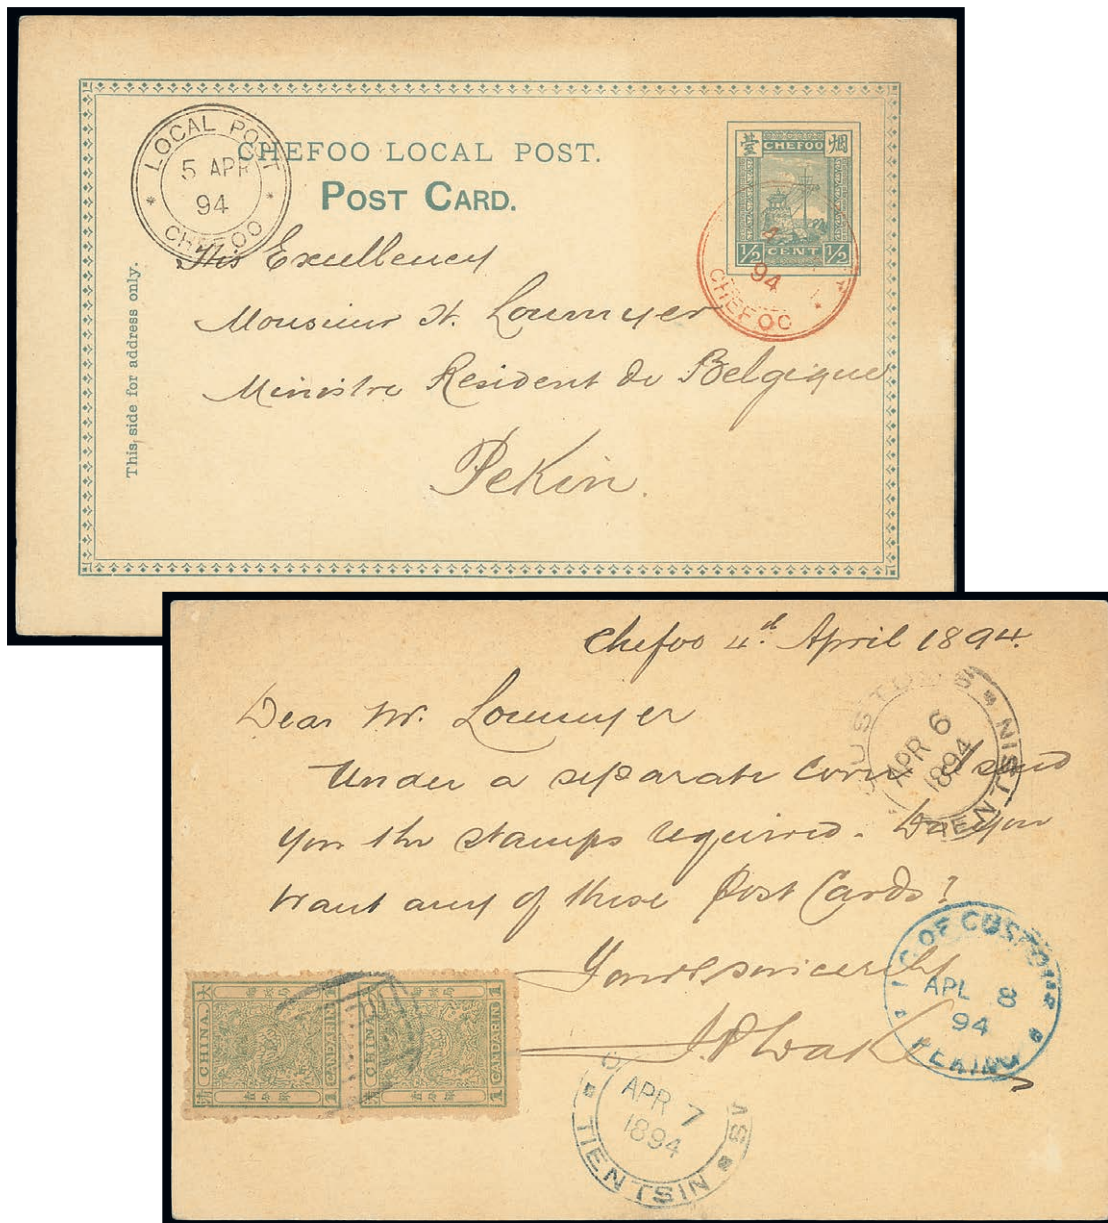 LOCAL POST
5 APR
94
CHEFOO
CHEFOO LOCAL POST.
POST CARD.
This side for address only.
烟
臺
CHEFOO
1/2 CENT 1/2
94
CHEFOO
His Excellency
Monsieur H. Loumyer
Ministre Resident de Belgique
Pekin.
Chefoo 4th April 1894.
Dear Mr. Loumyer
Under a separate cover I send
you the stamps required. Do you
want any of these Post Cards?
Yours sincerely
CUSTOMS
APR 6
1894
TIENTSIN
I. G. OF CUSTOMS
APL 8
94
PEKING
APR 7
1894
TIENTSIN
大
CHINA.
清
1 CANDARIN 1
CHINA
1 CANDARIN 1